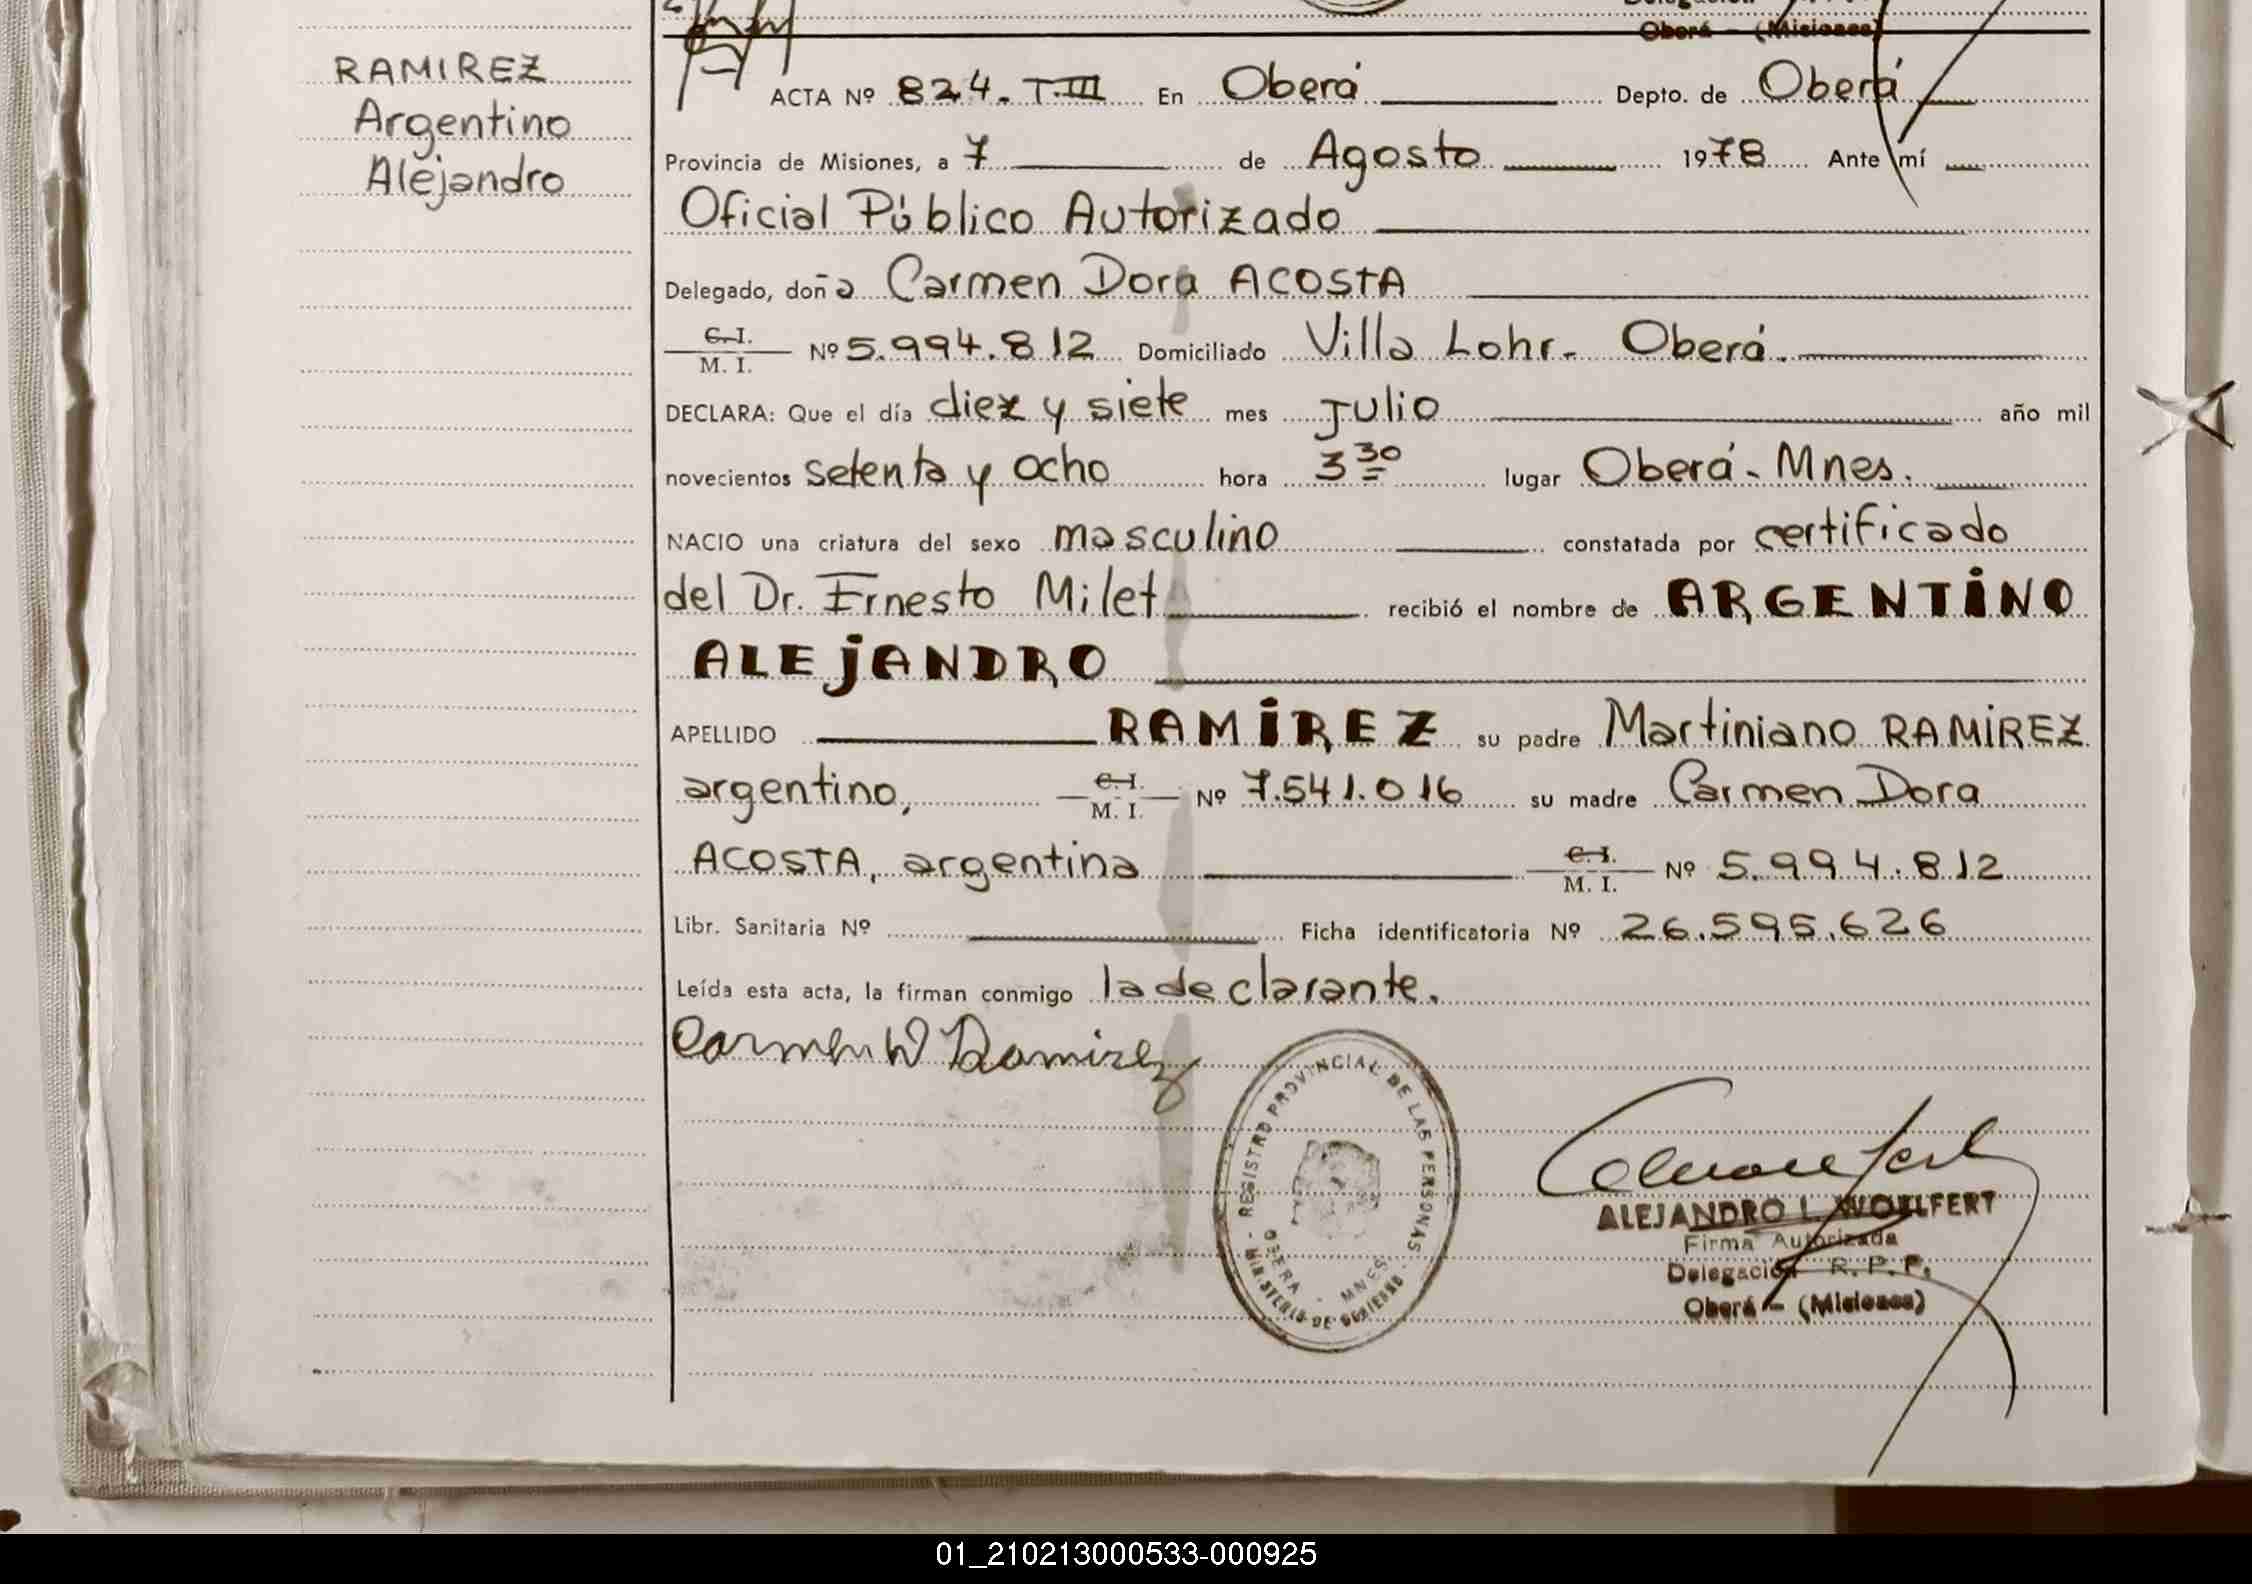 Oberá - (Misiones)
RAMIREZ
Argentino
Alejandro
ACTA Nº 824. T.III En Oberá Depto. de Oberá
Provincia de Misiones, a 7 de Agosto 1978 Ante mí
Oficial Público Autorizado
Delegado, doña Carmen Dora ACOSTA
C. I.
M. I. Nº 5.994.812 Domiciliado Villa Lohr. Oberá.
DECLARA: Que el día diez y siete mes Julio año mil
novecientos setenta y ocho hora 3 30 lugar Oberá - Mnes.
NACIO una criatura del sexo masculino constatada por certificado
del Dr. Ernesto Milet recibió el nombre de ARGENTINO
ALEJANDRO
APELLIDO RAMIREZ su padre Martiniano RAMIREZ
argentino, C. I.
M. I. Nº 7.541.016 su madre Carmen Dora
ACOSTA, argentina C. I.
M. I. Nº 5.994.812
Libr. Sanitaria Nº Ficha identificatoria Nº 26.595.626
Leída esta acta, la firman conmigo la declarante.
Carmen D Ramirez
REGISTRO PROVINCIAL DE LAS PERSONAS
OBERA - MNES
MINISTERIO DE GOBIERNO
ALEJANDRO L. WOELFERT
Firma Autorizada
Delegación R. P. P.
Oberá - (Misiones)
01_210213000533-000925